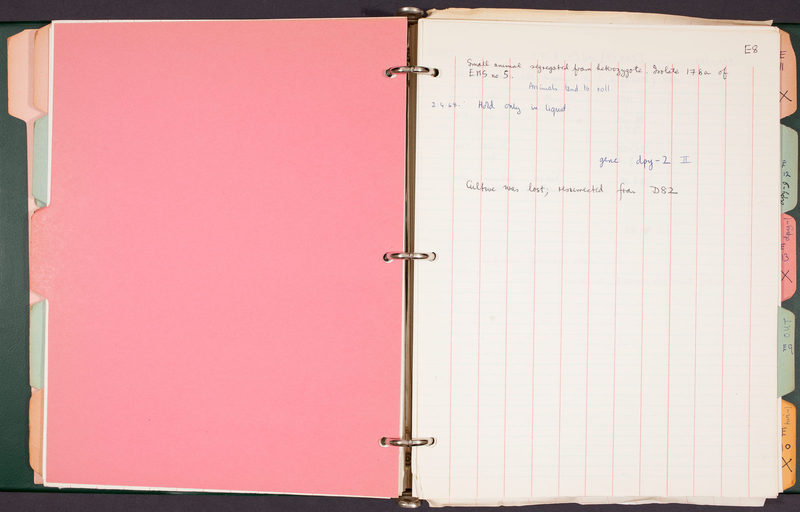 E8
Small animal segregated from hetrozygote Isolate 178a of
EMS no 5.
Animals tend to roll
2.4.68. Hold only in liquid
gene dpy-2 II
Culture was lost; resurrected from D82
E
X
dpy-1
E
X
OUT
E9
E
X